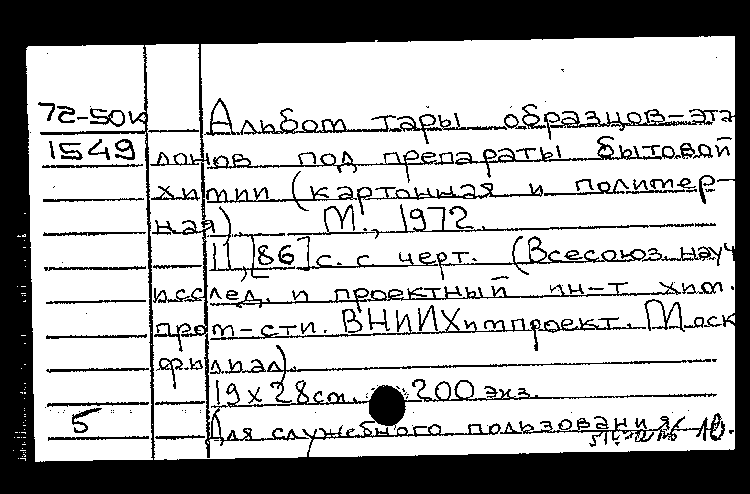 72-50к Альбом тары образцов-эта
1549 лонов под препараты бытовой
химии (картонная и полимер-
ная). М., 1972.
11, [86] с. с черт. (Всесоюз. науч
исслед. и проектный ин-т хим.
пром-сти. ВНИИХимпроект. Моск
филиал).
19 х 28 см. 200 экз.
5 Для служебного пользования 10.